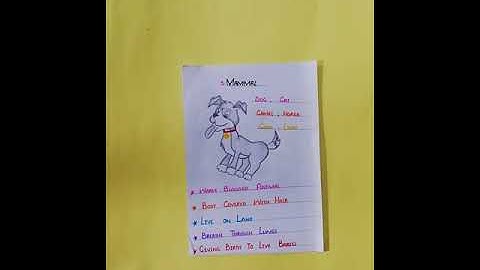 Mammal
Dog , Cat
Camel , Horse
Cow , Lion
Warm Blooded Animal
Body Covered With Hair
Live on Land
Breath Through Lungs
Giving Birth To Live Babies